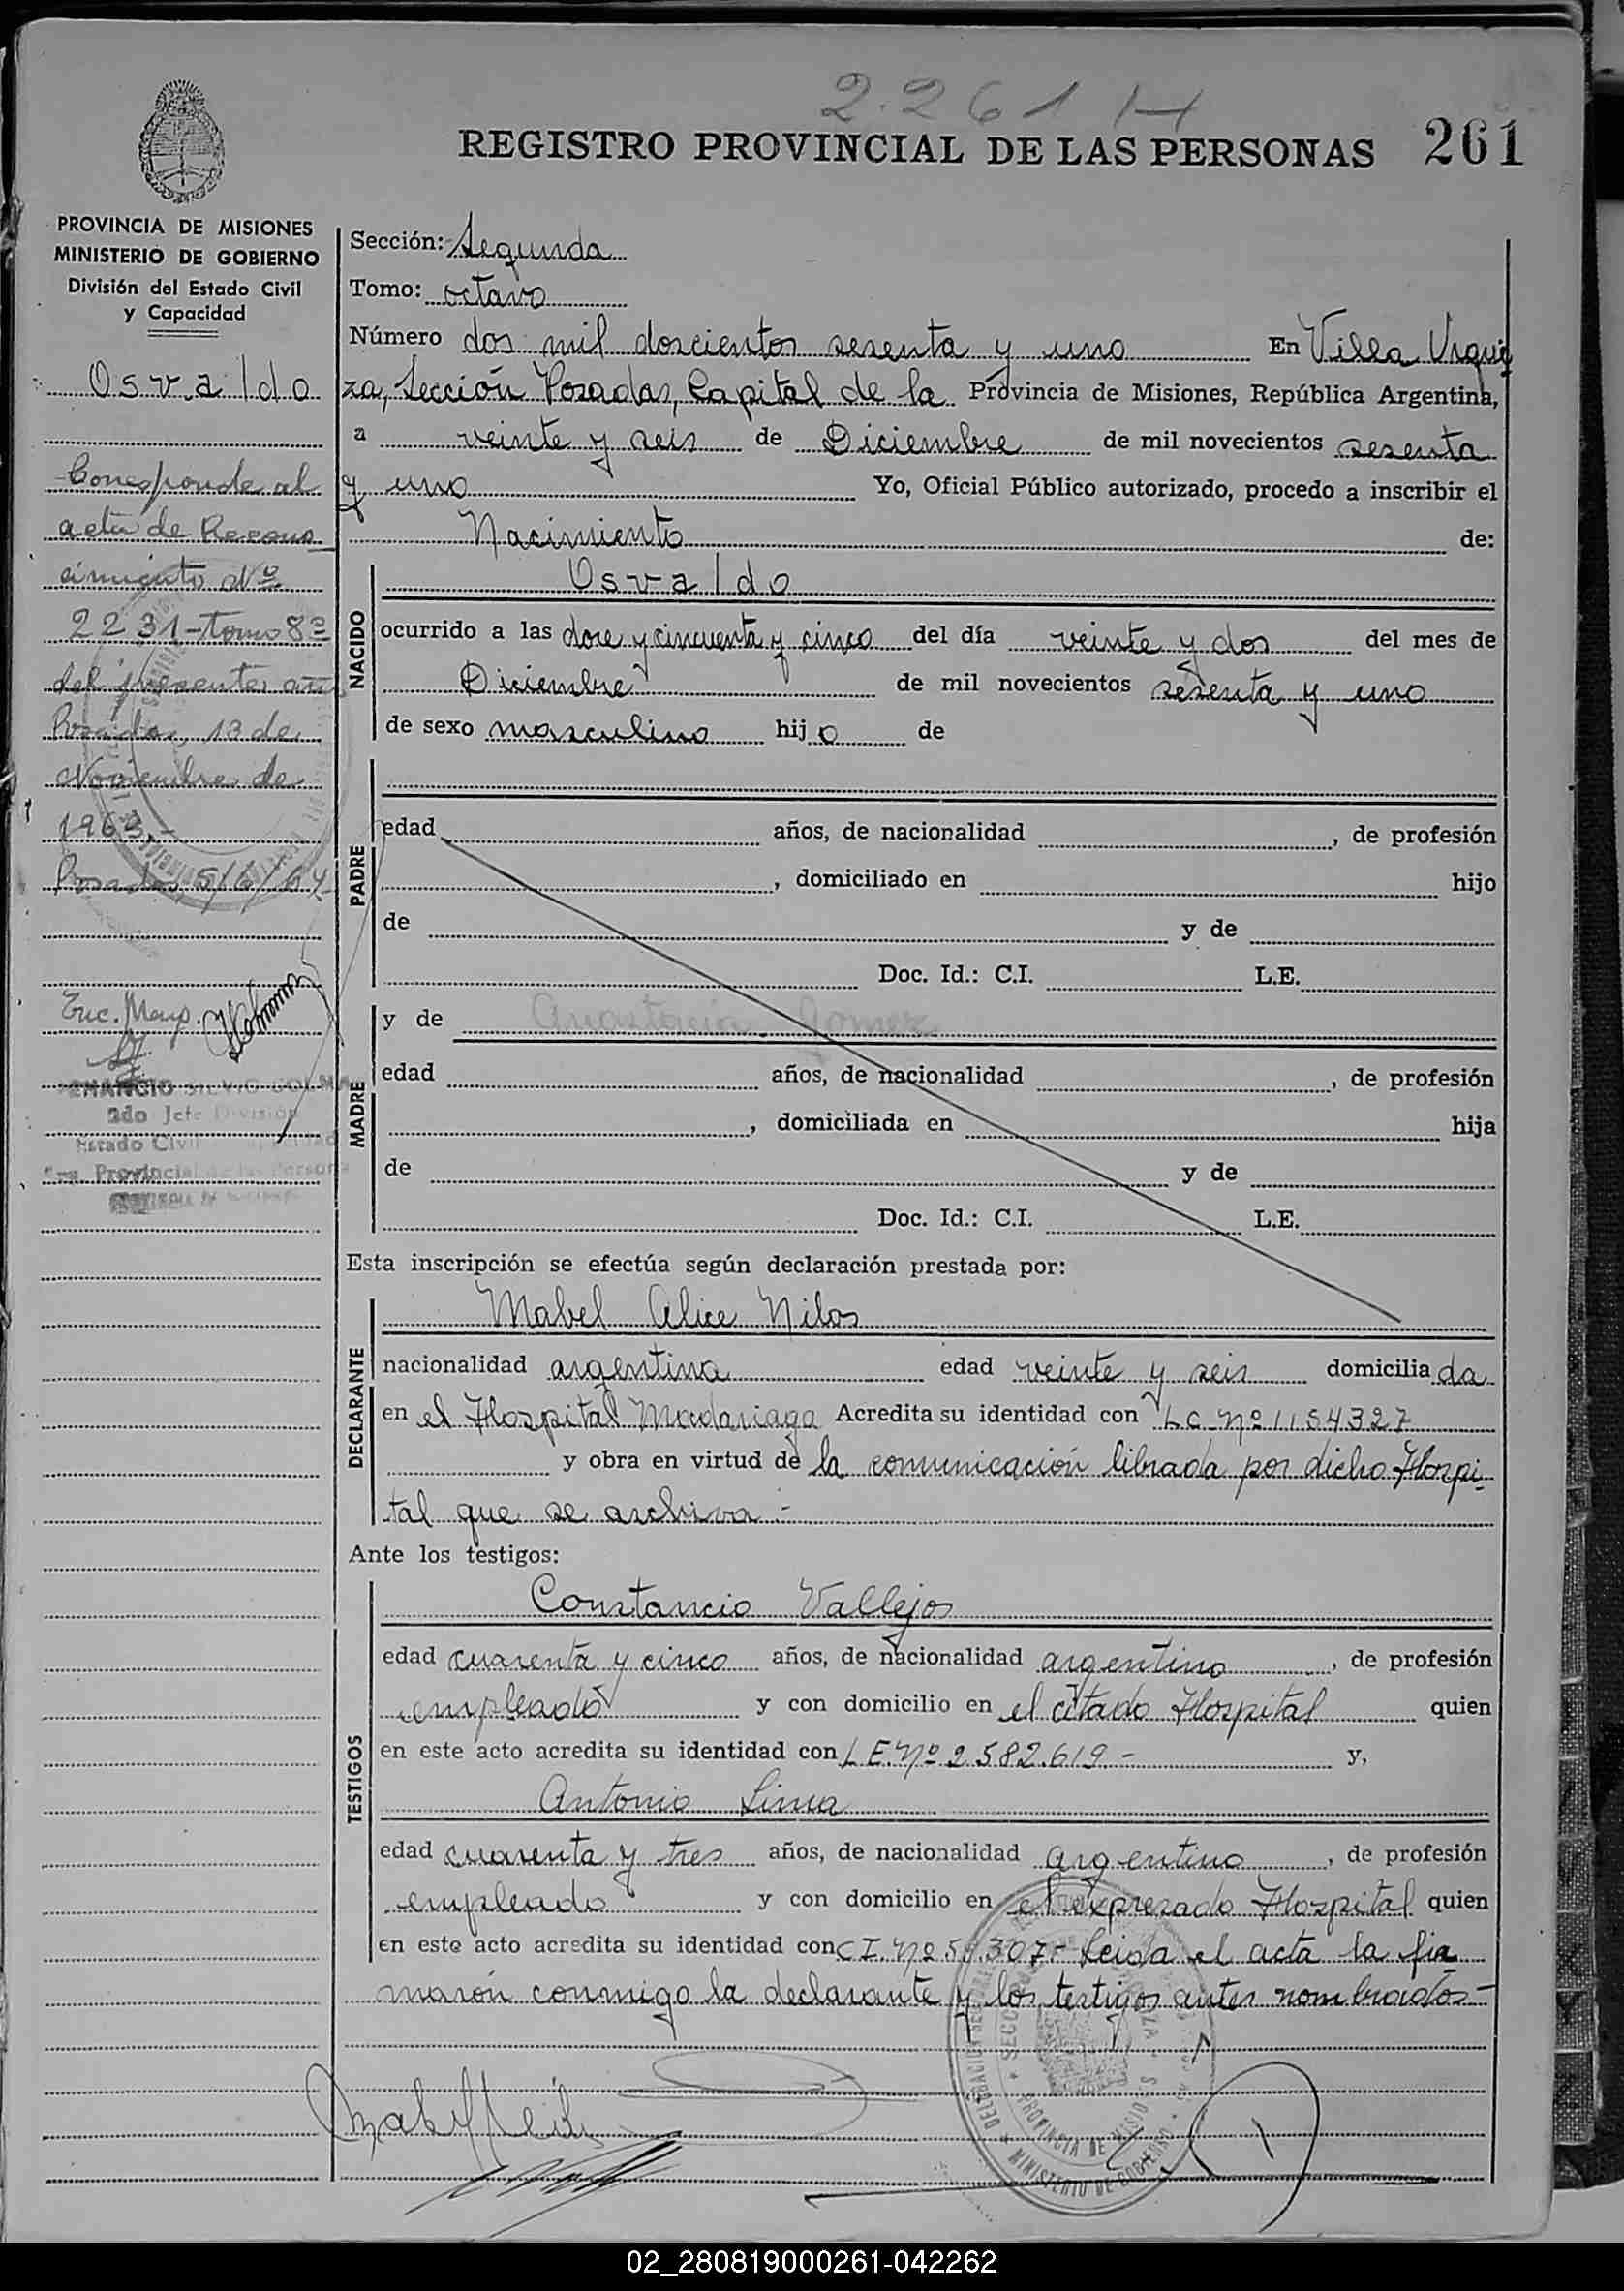 2.261 H
REGISTRO PROVINCIAL DE LAS PERSONAS 261
PROVINCIA DE MISIONES
MINISTERIO DE GOBIERNO
División del Estado Civil
y Capacidad
Osvaldo
Corresponde al
acta de Recono
cimiento Nº
2231-tomo 8º
del presente año
Posadas, 13 de
Noviembre de
1963.-
Posadas, 5/6/64
Enc. Mayo.
2do Jefe División
Estado Civil
Reg. Provincial de las Persona
Sección: Segunda
Tomo: octavo
Número dos mil doscientos sesenta y uno En Villa Urqui
za, Sección Posadas, Capital de la Provincia de Misiones, República Argentina,
a veinte y seis de Diciembre de mil novecientos sesenta
y uno Yo, Oficial Público autorizado, procedo a inscribir el
Nacimiento de:
NACIDO
Osvaldo
ocurrido a las doce y cincuenta y cinco del día veinte y dos del mes de
Diciembre de mil novecientos sesenta y uno
de sexo masculino hijo de
PADRE
edad años, de nacionalidad , de profesión
, domiciliado en hijo
de y de
Doc. Id.: C.I. L.E.
MADRE
y de Anastacia Gomez
edad años, de nacionalidad , de profesión
, domiciliada en hija
de y de
Doc. Id.: C.I. L.E.
Esta inscripción se efectúa según declaración prestada por:
DECLARANTE
Mabel Alice Nilos
nacionalidad argentina edad veinte y seis domiciliada
en el Hospital Madariaga Acredita su identidad con L.C. Nº 1154327
y obra en virtud de la comunicación librada por dicho Hospi-
tal que se archiva.-
Ante los testigos:
TESTIGOS
Constancio Vallejos
edad cuarenta y cinco años, de nacionalidad argentino , de profesión
empleado y con domicilio en el citado Hospital quien
en este acto acredita su identidad con L E. Nº 2.582.619.- y,
Antonio Lima
edad cuarenta y tres años, de nacionalidad argentino , de profesión
empleado y con domicilio en el expresado Hospital quien
en este acto acredita su identidad con C I. Nº 307.- Leída el acta la fir
maron conmigo la declarante y los testigos antes nombrados-
PROVINCIA DE MISIONES
MINISTERIO DE GOBIERNO
02_280819000261-042262